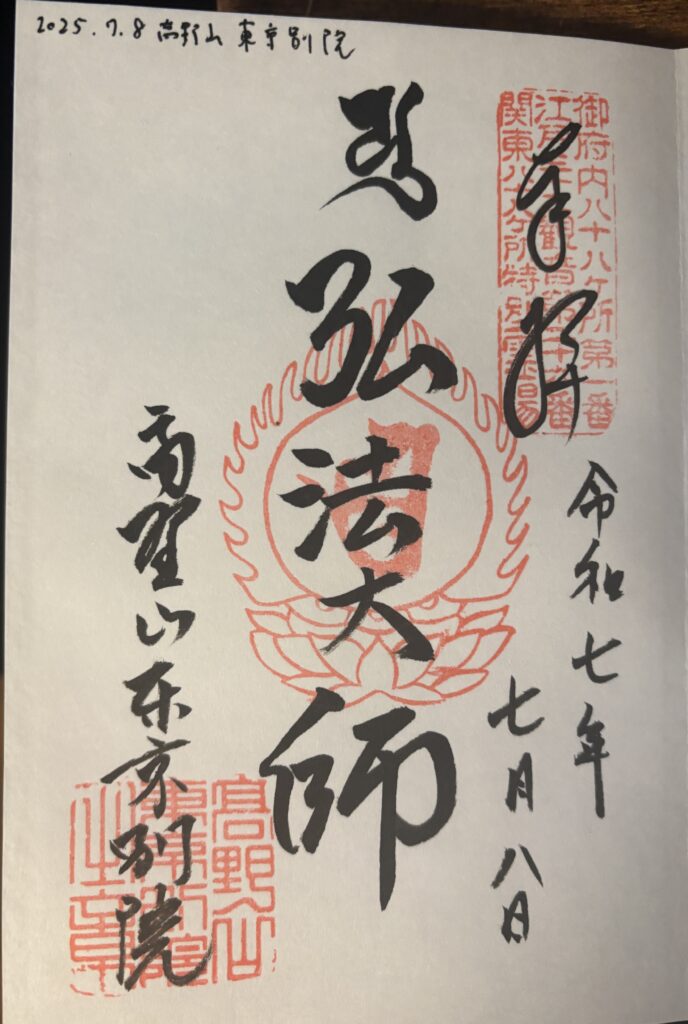 2025.7.8 高野山 東京別院
御府内八十八ケ所第一番
江戸三十三観音第二十九番
関東八十八ケ所特別霊場
奉拝
令和七年
七月八日
弘法大師
高野山東京別院
高野山
東京別院
之章